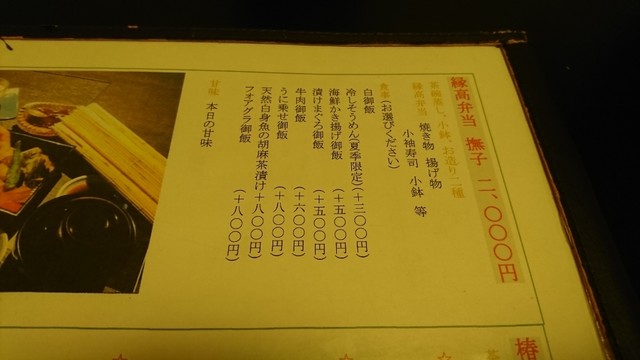 縁高弁当 撫子 二、〇〇〇円
茶碗蒸し、小鉢、お造り二種
縁高弁当 焼き物 揚げ物
小袖寿司 小鉢 等
食事(お選びください)
白御飯
冷しそうめん(夏季限定)(+三〇〇円)
海鮮かき揚げ御飯 (+五〇〇円)
漬けまぐろ御飯 (+五〇〇円)
牛肉御飯 (+六〇〇円)
うに乗せ御飯 (+八〇〇円)
天然白身魚の胡麻茶漬け(+八〇〇円)
フォアグラ御飯 (+八〇〇円)
甘味 本日の甘味
椿